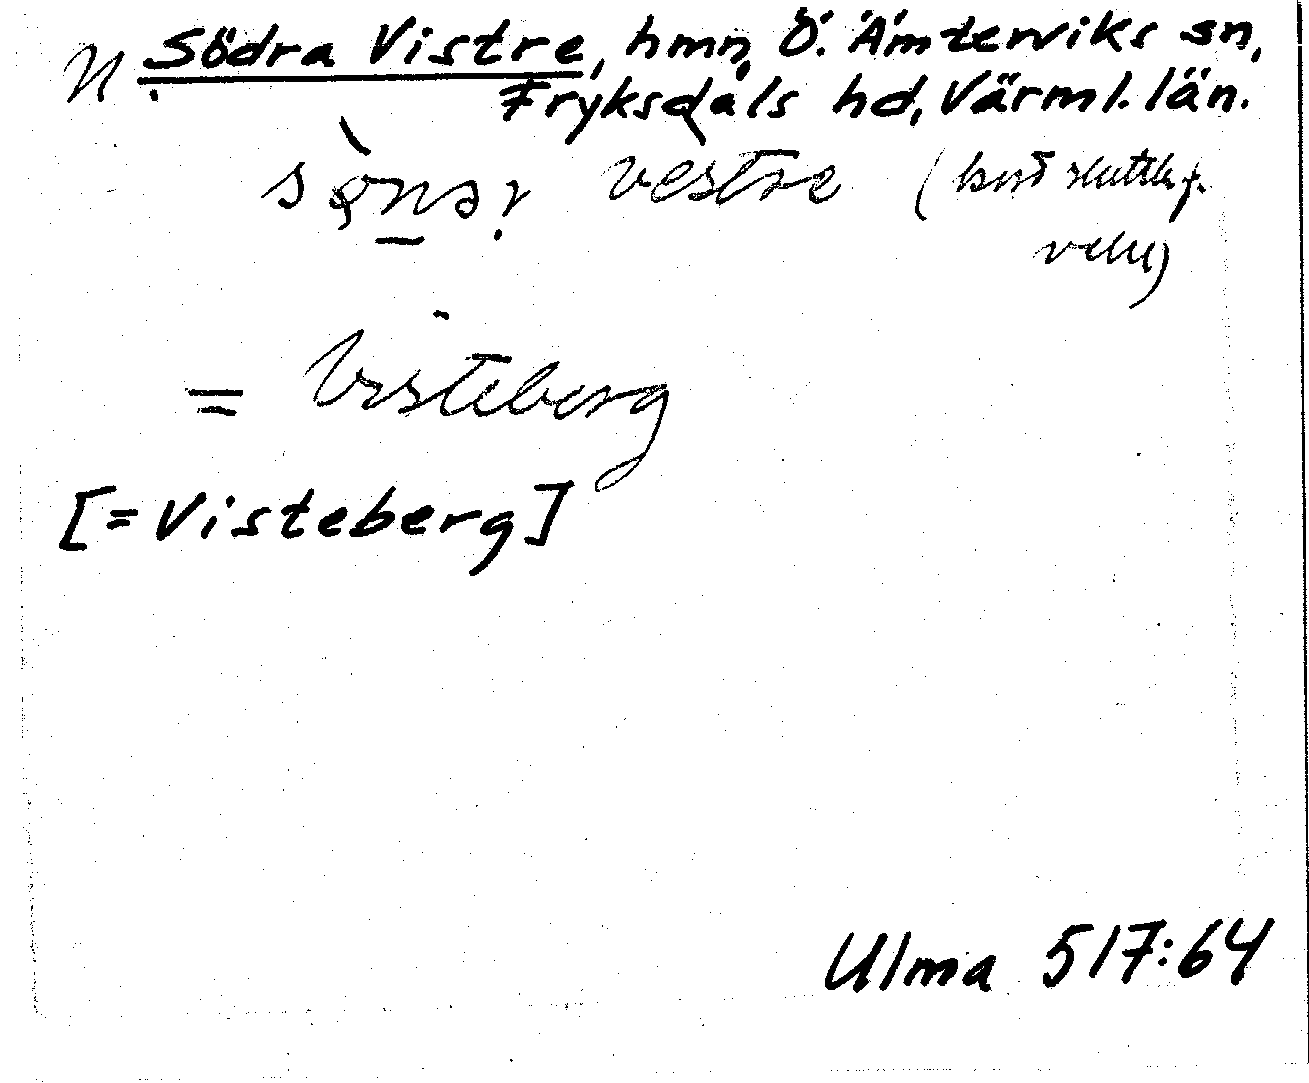 N Södra Vistre, hmn, Ö. Ämterviks sn,
Fryksdals hd, Värml. län.
vestre (kort
= Visteberg
[= Visteberg]
Ulma 517:64